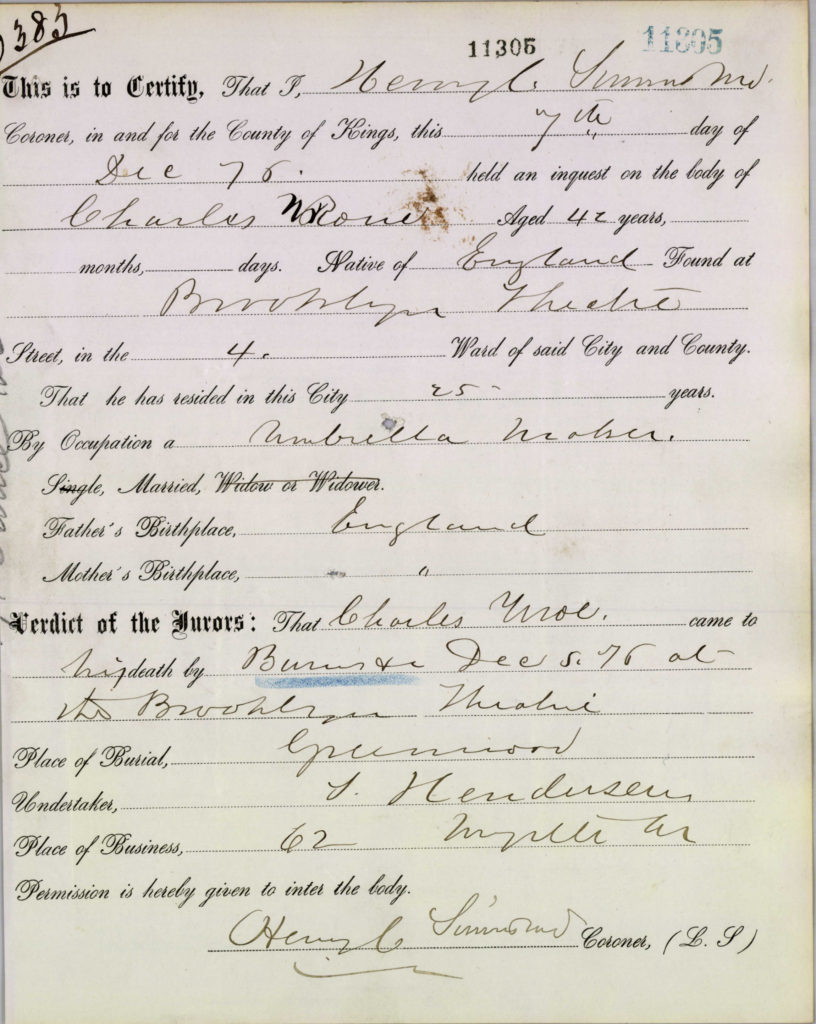 383
11305 11305
This is to Certify, That I, Henry C. Simms MD.
Coroner, in and for the County of Kings, this 7th day of
Dec 76. held an inquest on the body of
Charles Aged 42 years,
months, days. Native of England Found at
Brooklyn Theatre
Street, in the 4. Ward of said City and County.
That he has resided in this City 25 years.
By Occupation a Umbrella Maker.
Single, Married, Widow or Widower.
Father's Birthplace, England
Mother's Birthplace, "
Verdict of the Jurors: That Charles came to
his death by Burns &c Dec 5. 76 at
the Brooklyn Theatre
Place of Burial, Greenwood
Undertaker, S. Henderson
Place of Business, 62 Myrtle Av
Permission is hereby given to inter the body.
Henry C Simms MD Coroner, (L. S)